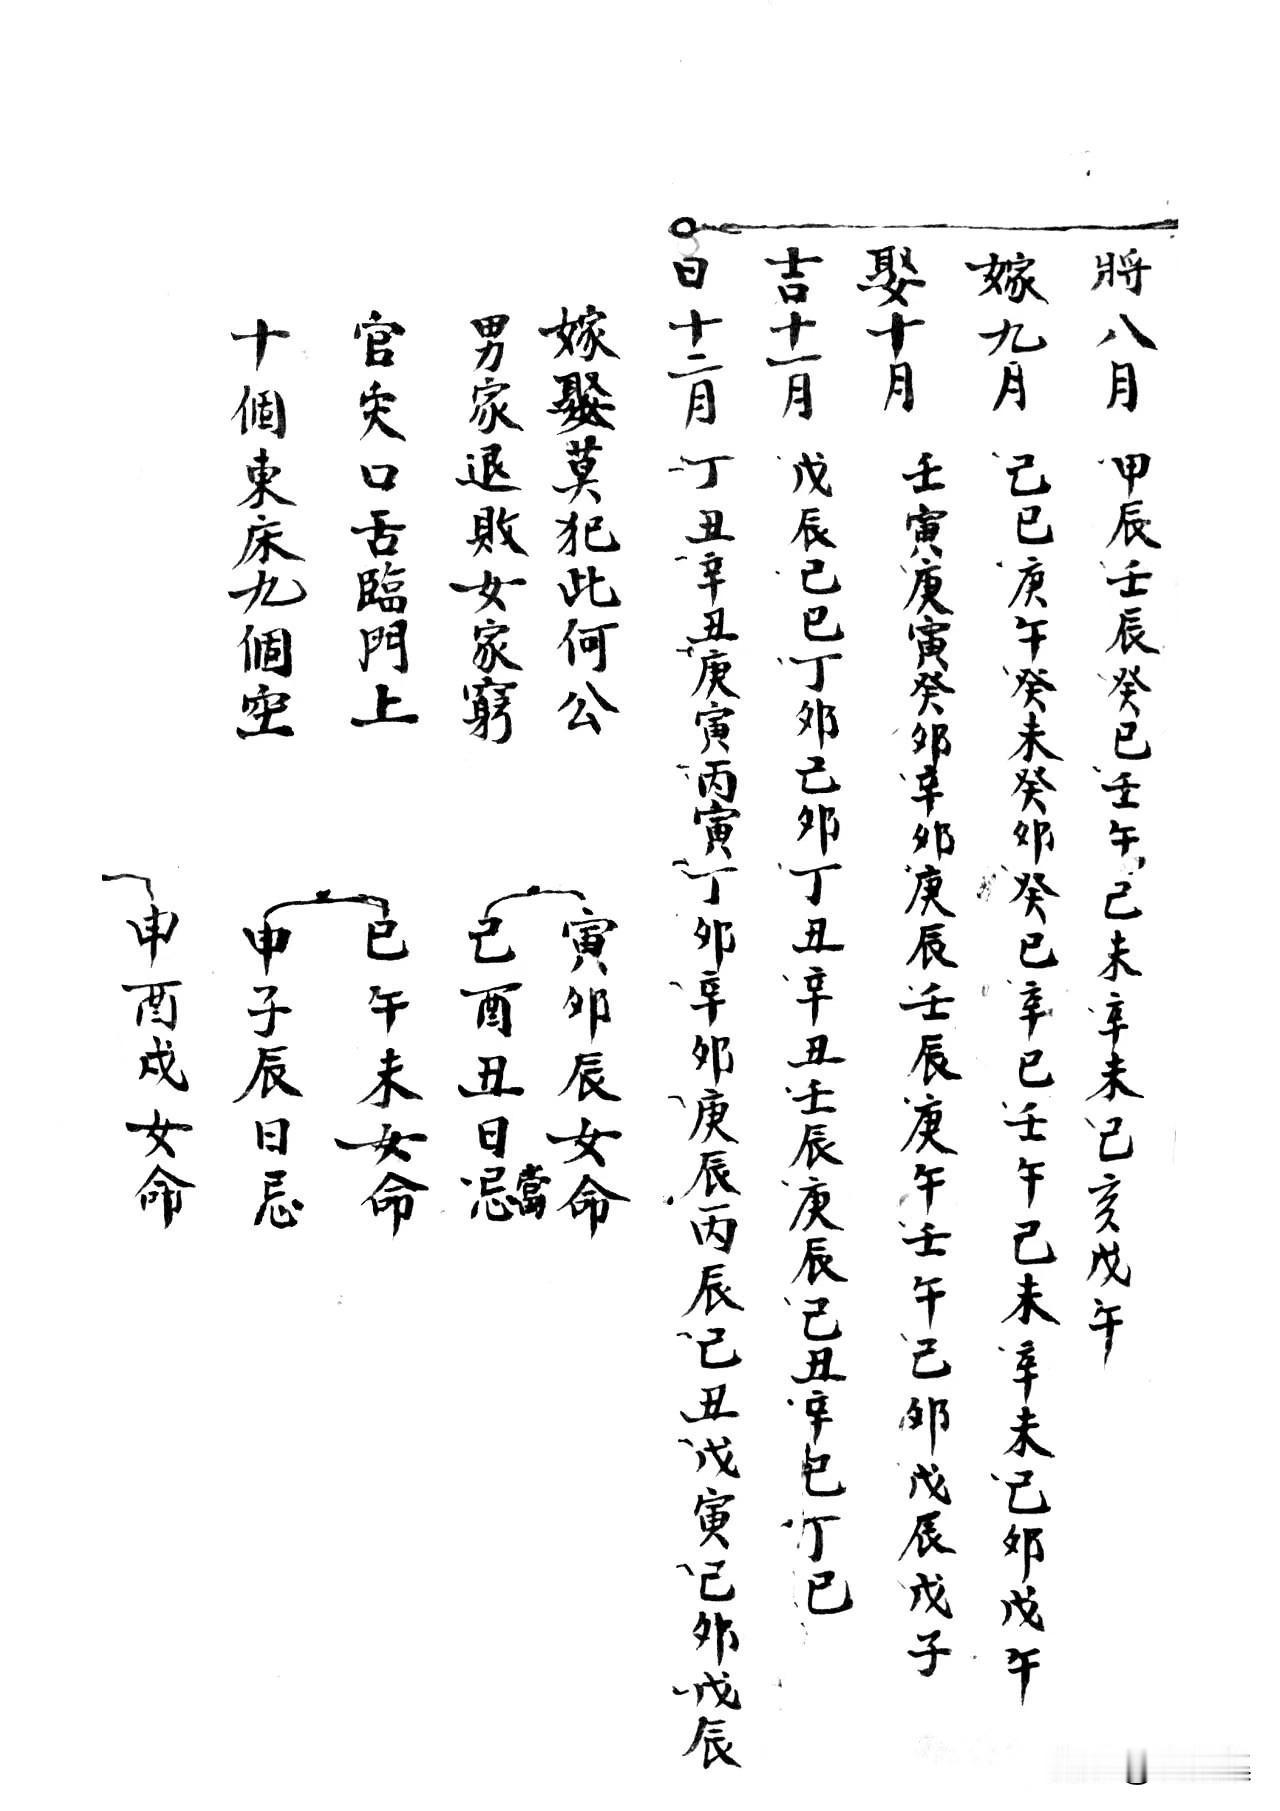 將八月 甲辰壬辰癸巳壬午己未辛未己亥戊午
嫁九月 己巳庚午癸未癸卯癸巳辛巳壬午己未辛未己卯戊午
娶十月 壬寅庚寅癸卯辛卯庚辰壬辰庚午壬午己卯戊辰戊子
吉十一月 戊辰己巳丁卯己卯丁丑辛丑壬辰庚辰己丑辛巳丁巳
日十二月 丁丑辛丑庚寅丙寅丁卯辛卯庚辰丙辰己丑戊寅己卯戊辰
嫁娶莫犯此何公
男家退敗女家窮
官灾口舌臨門上
十個東床九個空
寅卯辰女命當
巳酉丑日忌
巳午未女命
申子辰日忌
申酉戌女命